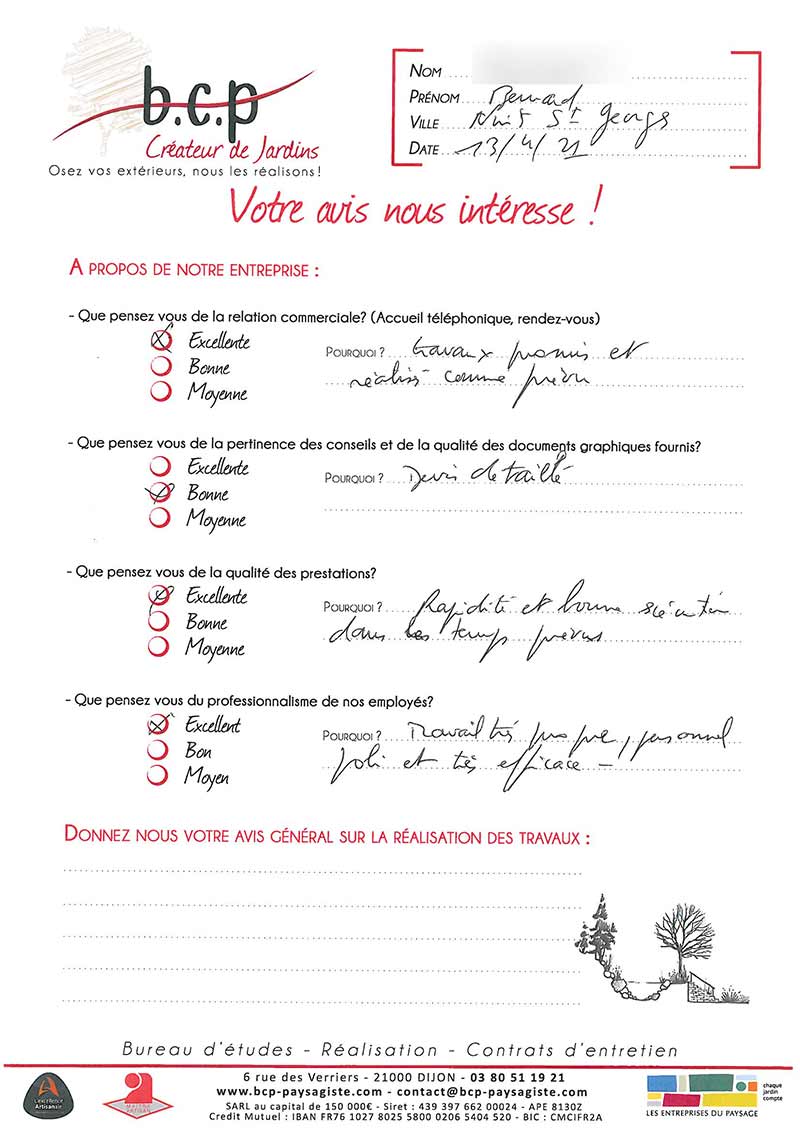 b.c.p
Créateur de Jardins
Osez vos extérieurs, nous les réalisons!
NOM
PRÉNOM Bernard
VILLE Nuit St Georges
DATE 13/4/21
Votre avis nous intéresse !
A PROPOS DE NOTRE ENTREPRISE :
- Que pensez vous de la relation commerciale? (Accueil téléphonique, rendez-vous)
Excellente
POURQUOI ? travaux promis et
Bonne
réalisés comme prévu
Moyenne
- Que pensez vous de la pertinence des conseils et de la qualité des documents graphiques fournis?
Excellente
POURQUOI ? Devis detaillé
Bonne
Moyenne
- Que pensez vous de la qualité des prestations?
Excellente
POURQUOI ? Rapidité et bonne
Bonne
dans les temps prévus
Moyenne
- Que pensez vous du professionnalisme de nos employés?
Excellent
POURQUOI ? Travail très propre, personnel
Bon
poli et très efficace -
Moyen
DONNEZ NOUS VOTRE AVIS GÉNÉRAL SUR LA RÉALISATION DES TRAVAUX :
Bureau d'études - Réalisation - Contrats d'entretien
6 rue des Verriers - 21000 DIJON - 03 80 51 19 21
www.bcp-paysagiste.com - contact@bcp-paysagiste.com
SARL au capital de 150 000€ - Siret : 439 397 662 00024 - APE 8130Z
Credit Mutuel : IBAN FR76 1027 8025 5800 0206 5404 520 - BIC : CMCIFR2A
Artisanale
MAITRE ARTISAN
LES ENTREPRISES DU PAYSAGE
chaque
jardin
compte